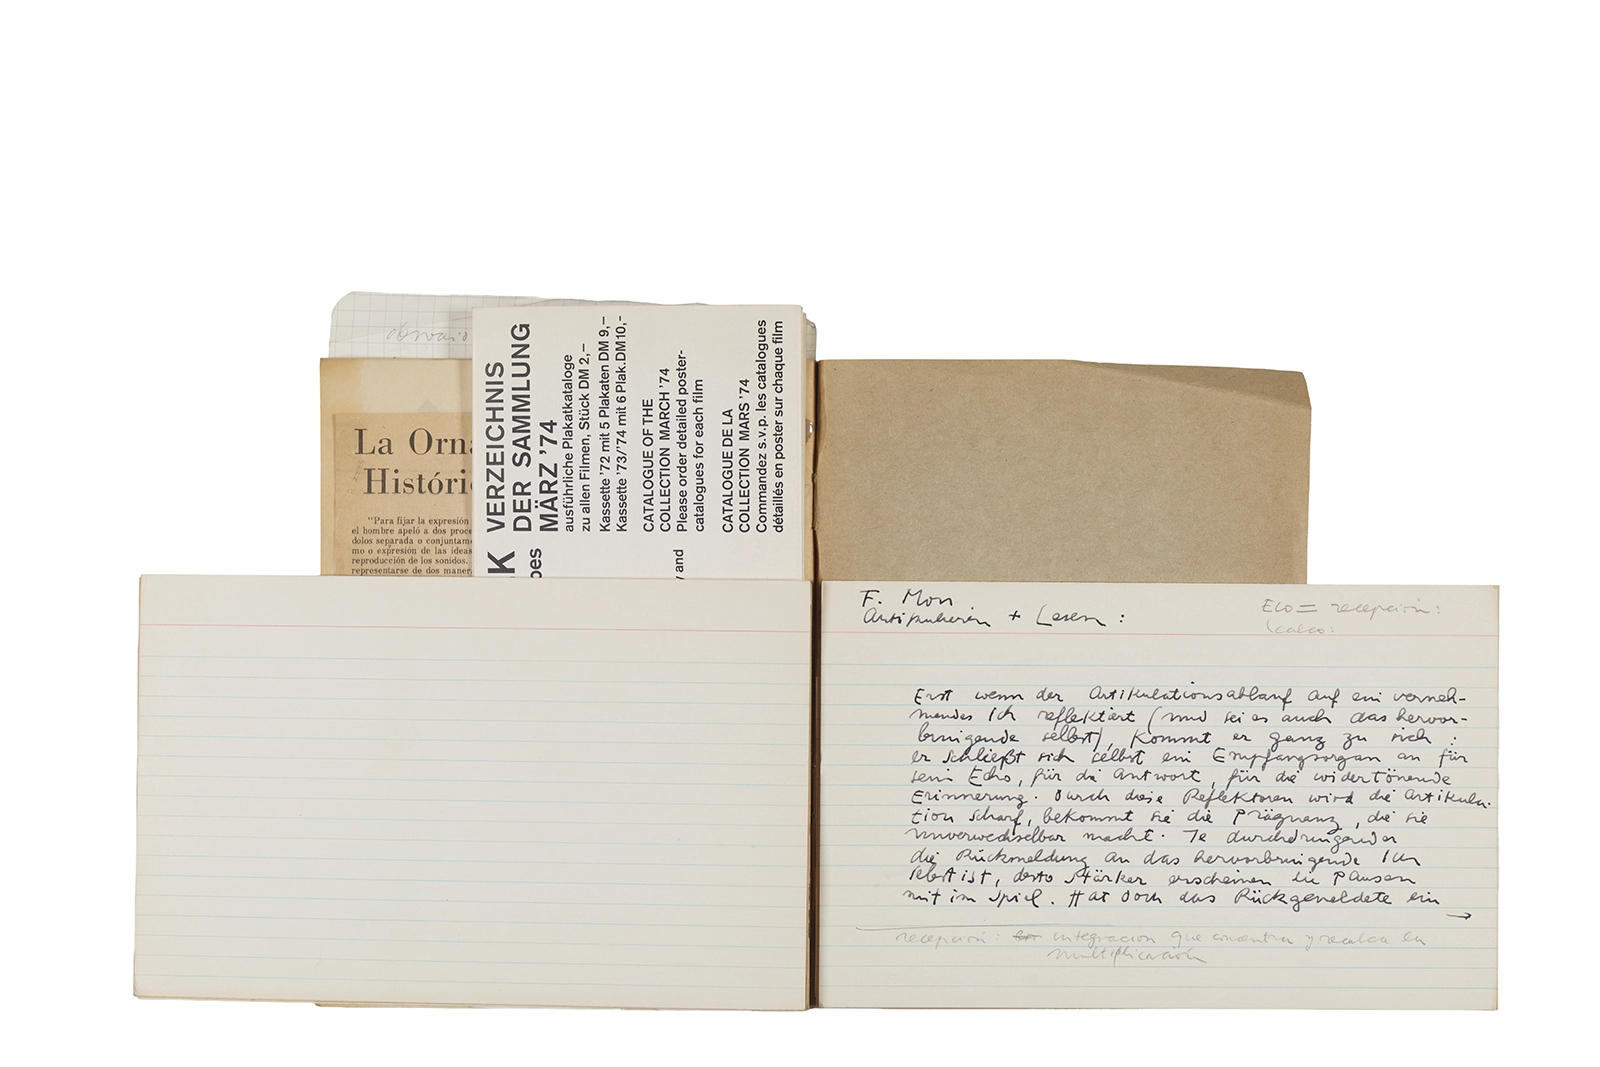 La Orn
Históri
"Para fijar la expresión
el hombre apeló a dos proce
dolos separada o conjuntame
mo o expresión de las ideas
reproducción de los sonidos.
representarse de dos maner
K VERZEICHNIS
DER SAMMLUNG
MÄRZ '74
ausführliche Plakatkataloge
zu allen Filmen, Stück DM 2,–
Kassette '72 mit 5 Plakaten DM 9,–
Kassette '73/'74 mit 6 Plak. DM 10,–
CATALOGUE OF THE
COLLECTION MARCH '74
Please order detailed poster-
catalogues for each film
CATALOGUE DE LA
COLLECTION MARS '74
Commandez s.v.p. les catalogues
détaillés en poster sur chaque film
pes
y and
F. Mon
Artikulieren + Lesen :
Eco = recepción:
calco:
Erst wenn der Artikulationsablauf auf ein verneh-
mendes Ich reflektiert (und sei es auch das hervor-
bringende selbst), kommt er ganz zu sich :
er schließt sich selbst ein Empfangsorgan an für
sein Echo, für die Antwort, für die widertönende
Erinnerung. Durch diese Reflektoren wird die Artikula-
tion scharf, bekommt sie die Prägnanz, die sie
unverwechselbar macht. Je durchdringender
die Rückmeldung an das hervorbringende Ich
selbst ist, desto stärker erscheinen die Pausen
mit im Spiel. Hat doch das Rückgemeldete ein
→
recepción: integracion que concentra y recalca en
multiplicación